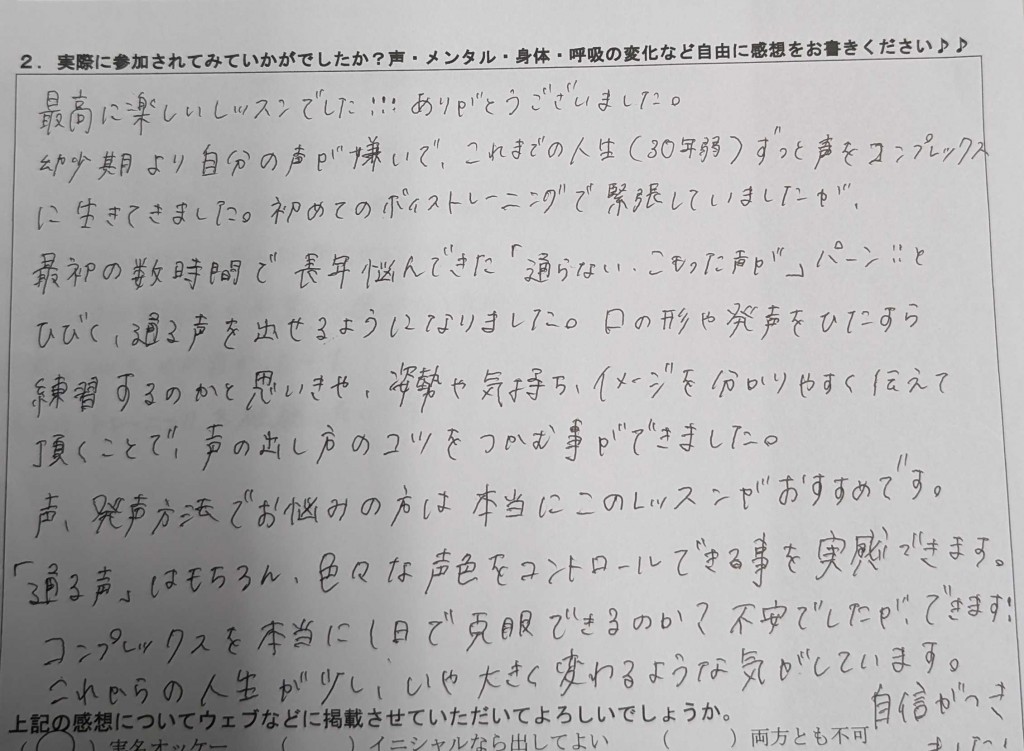 ２．実際に参加されてみていかがでしたか？声・メンタル・身体・呼吸の変化など自由に感想をお書きください♪♪
最高に楽しいレッスンでした!!! ありがとうございました。
幼少期より自分の声が嫌いで、これまでの人生（30年弱）ずっと声をコンプレックス
に生きてきました。初めてのボイストレーニングで緊張していましたが、
最初の数時間で長年悩んできた「通らない、こもった声が」パーン!!と
ひびく、通る声を出せるようになりました。口の形や発声をひたすら
練習するのかと思いきや、姿勢や気持ち、イメージを分かりやすく伝えて
頂くことで、声の出し方のコツをつかむ事ができました。
声、発声方法でお悩みの方は本当にこのレッスンがおすすめです。
「通る声」はもちろん、色々な声色をコントロールできる事を実感できます。
コンプレックスを本当に1日で克服できるのか？不安でしたが、できます!
これからの人生が少し、いや大きく変わるような気がしています。
自信がつき
ました
上記の感想についてウェブなどに掲載させていただいてよろしいでしょうか。
（○）実名オッケー （　　）イニシャルなら出してよい （　　）両方とも不可